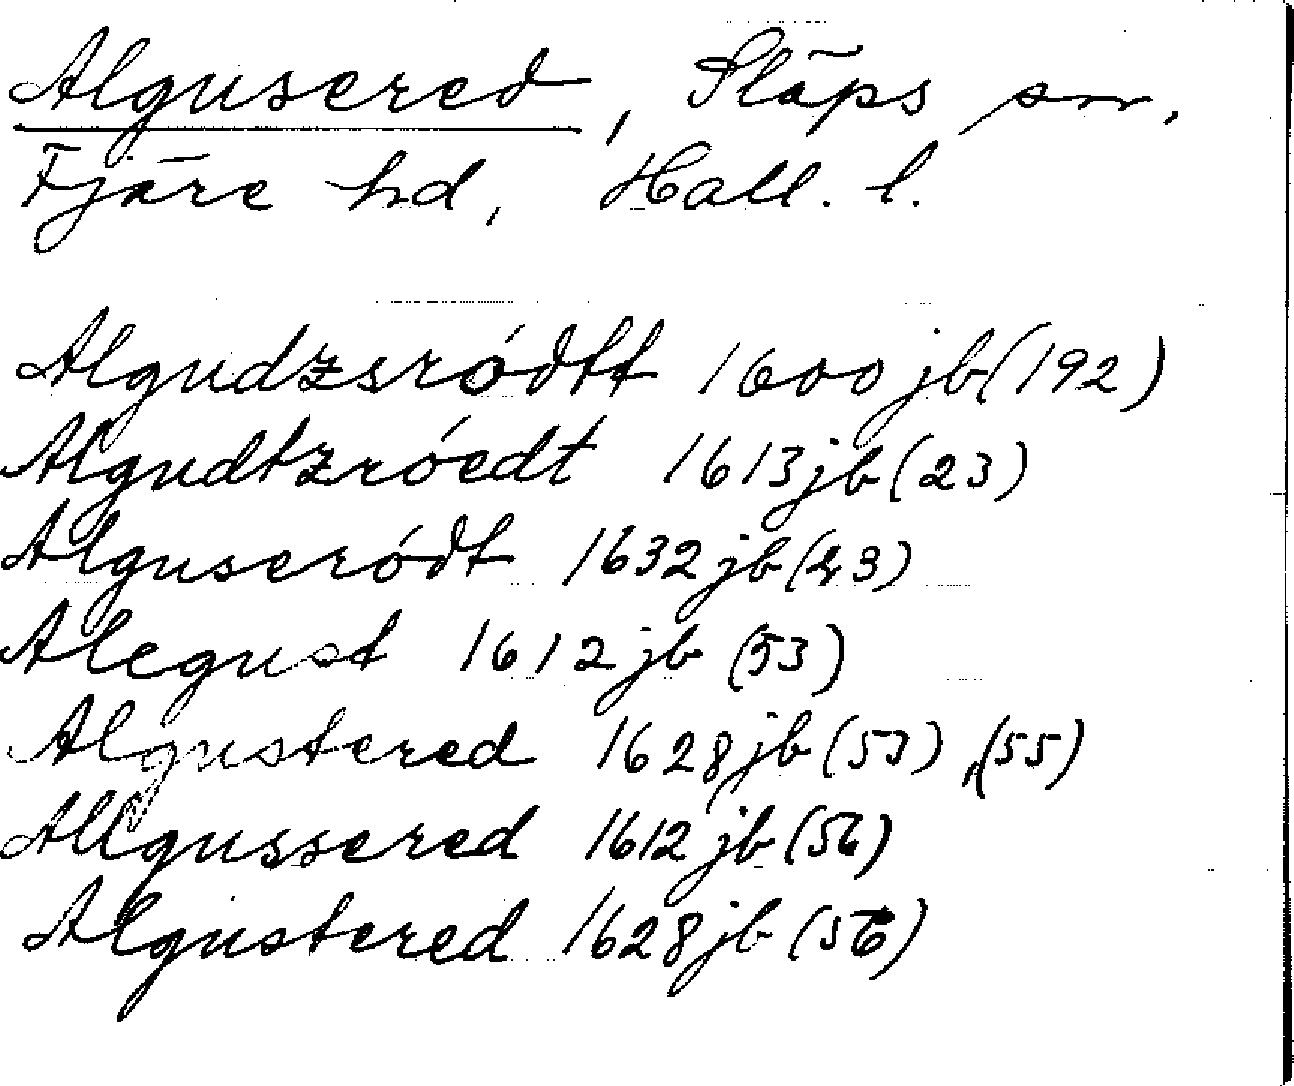 Algusered, Släps sn,
Fjäre hd, Hall. l.
Algudzsródtt 1600 jb (192)
Algudtzróedt 1613 jb (23)
Alguseródt 1632 jb (43)
Alegust 1612 jb (53)
Algustered 1628 jb (53), (55)
Allgussered 1612 jb (56)
Algustered 1628 jb (56)